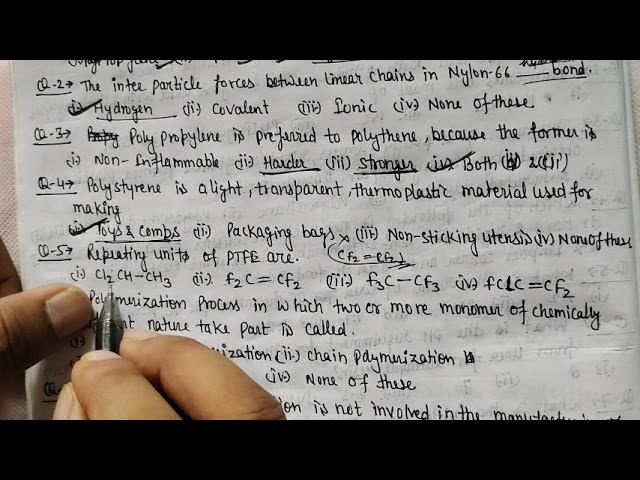 Q-2→ The inter particle forces between linear chains in Nylon-66 bond.
(i) Hydrogen (ii) Covalent (iii) Ionic (iv) None of these
Q-3→ Poly propylene is preferred to polythene, because the former is
(i) Non-Inflammable (ii) Harder (iii) Stronger (iv) Both (ii) & (iii)
Q-4→ Polystyrene is a light, transparent, thermoplastic material used for
making
(i) Toys & Combs (ii) Packaging bags (iii) Non-sticking utensis (iv) None of these
Q-5→ Repeating units of PTFE are. (CF2=CF2)
(i) Cl2CH-CH3 (ii) F2C=CF2 (iii) F3C-CF3 (iv) FClC=CF2
Polymurization Process in which two or more monomer of chemically
nature take part is called.
(i) (ii) chain polymurization
(iv) None of these
is not involved in the